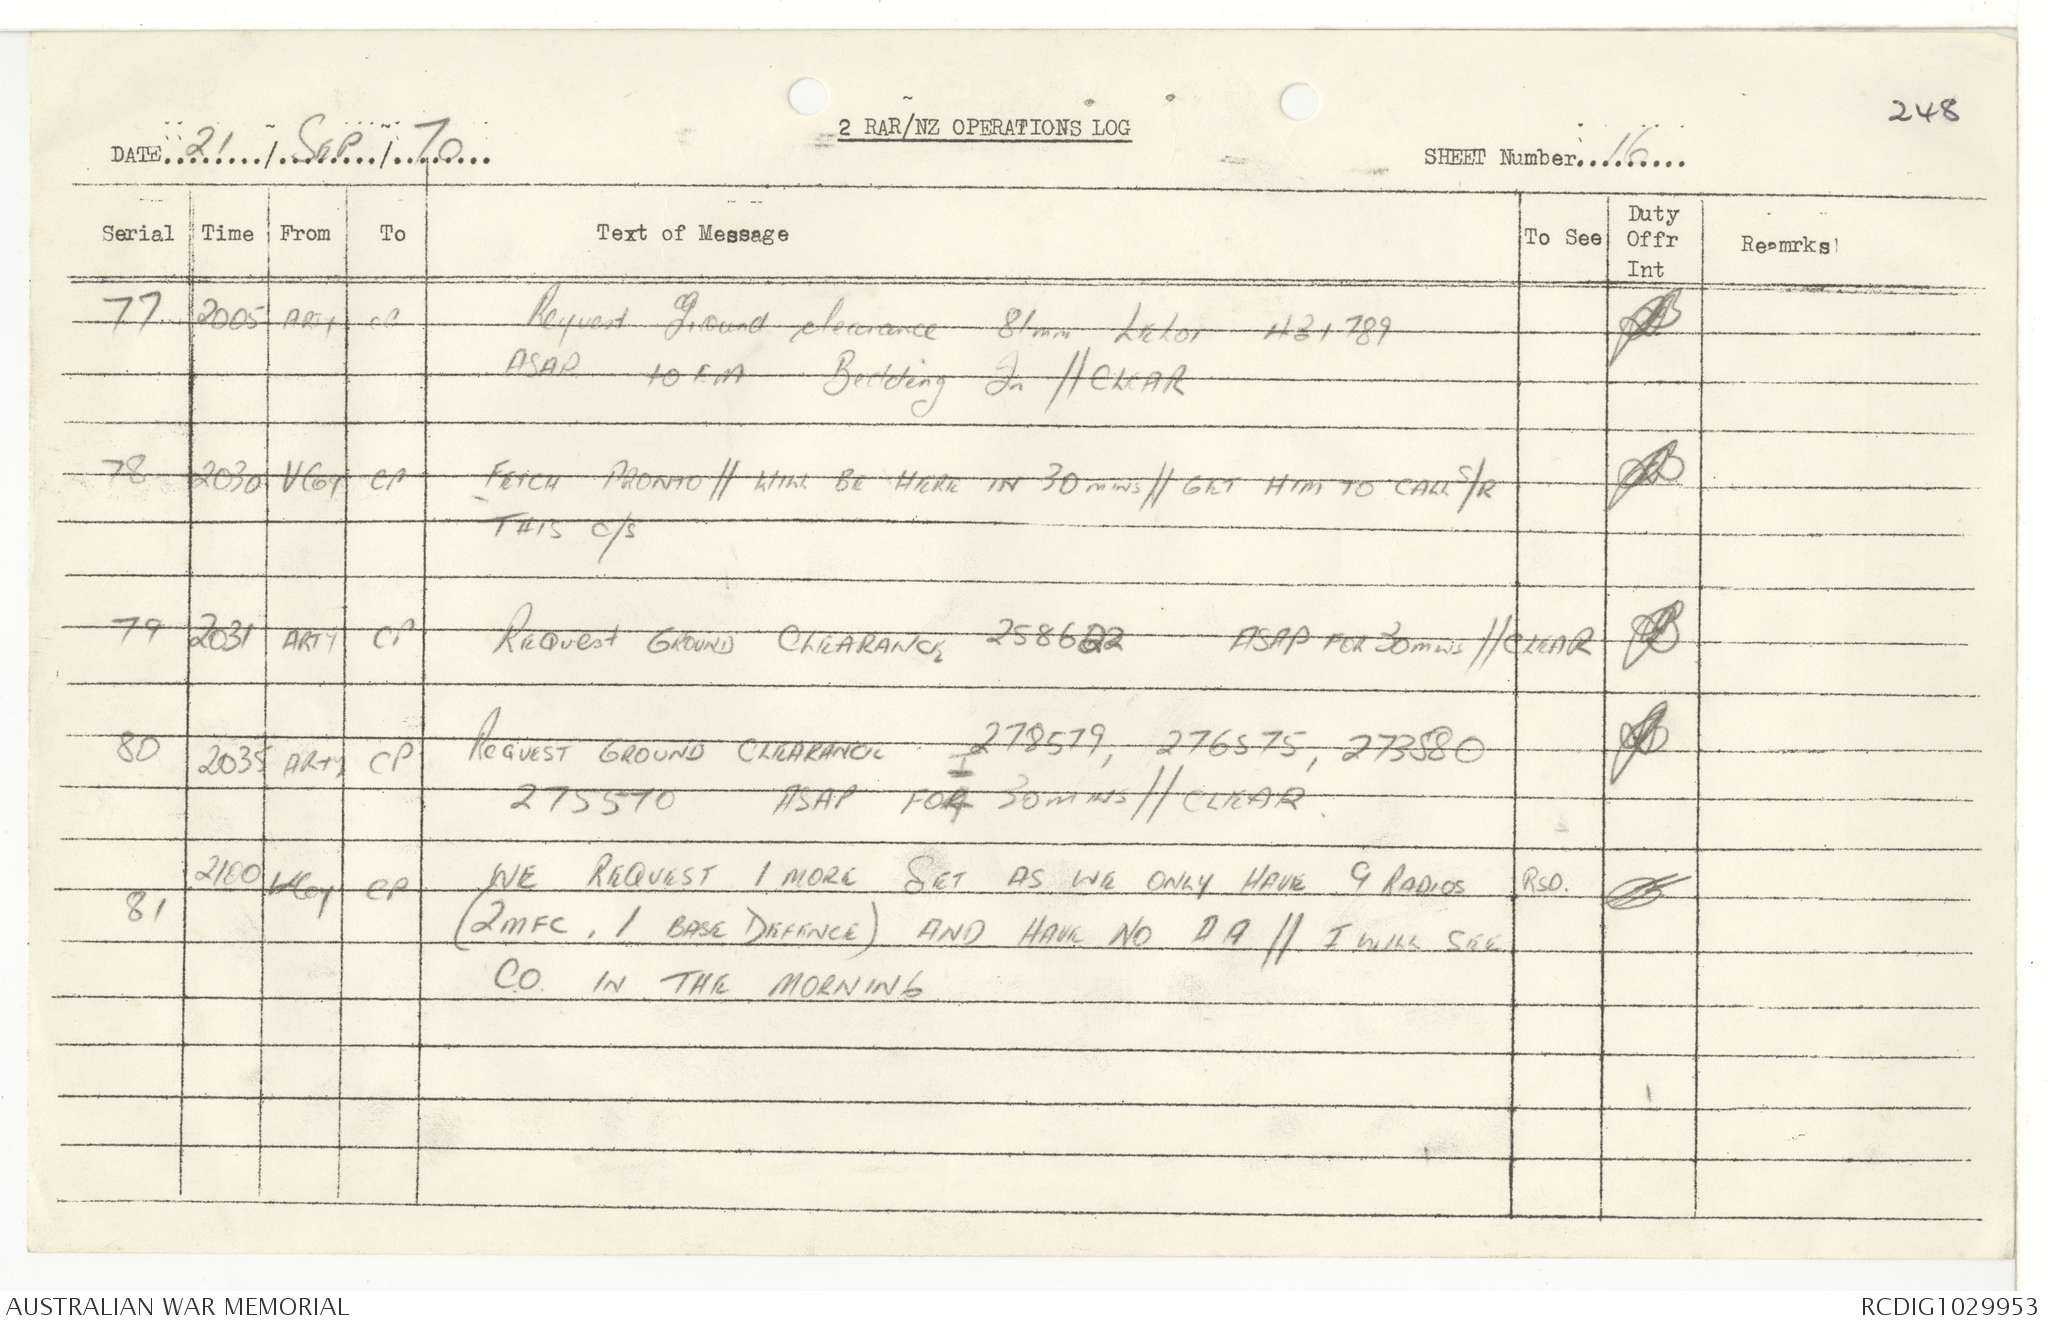 248
2 RAR/NZ OPERATIONS LOG
DATE 21 / SEP / 70
SHEET Number 16
Serial Time From To Text of Message To See Duty Offr Int Remrks
77 2005 ARTY CP Request Ground clearance 81mm 431789
ASAP Bedding In // CLEAR
78 2030 V Coy CP FETCH PRONTO // WILL BE HERE IN 30 MINS // GET HIM TO CALL S/R
THIS C/S
79 2031 ARTY CP REQUEST GROUND CLEARANCE 258622 ASAP FOR 30 MINS // CLEAR
80 2035 ARTY CP REQUEST GROUND CLEARANCE 278579, 276575, 273580
275570 ASAP FOR 30 MINS // CLEAR.
81 2100 V Coy CP WE REQUEST 1 MORE SET AS WE ONLY HAVE 9 RADIOS RSO.
(2 MFC, 1 BASE DEFENCE) AND HAVE NO // I WILL SEE
C.O. IN THE MORNING
AUSTRALIAN WAR MEMORIAL
RCDIG1029953